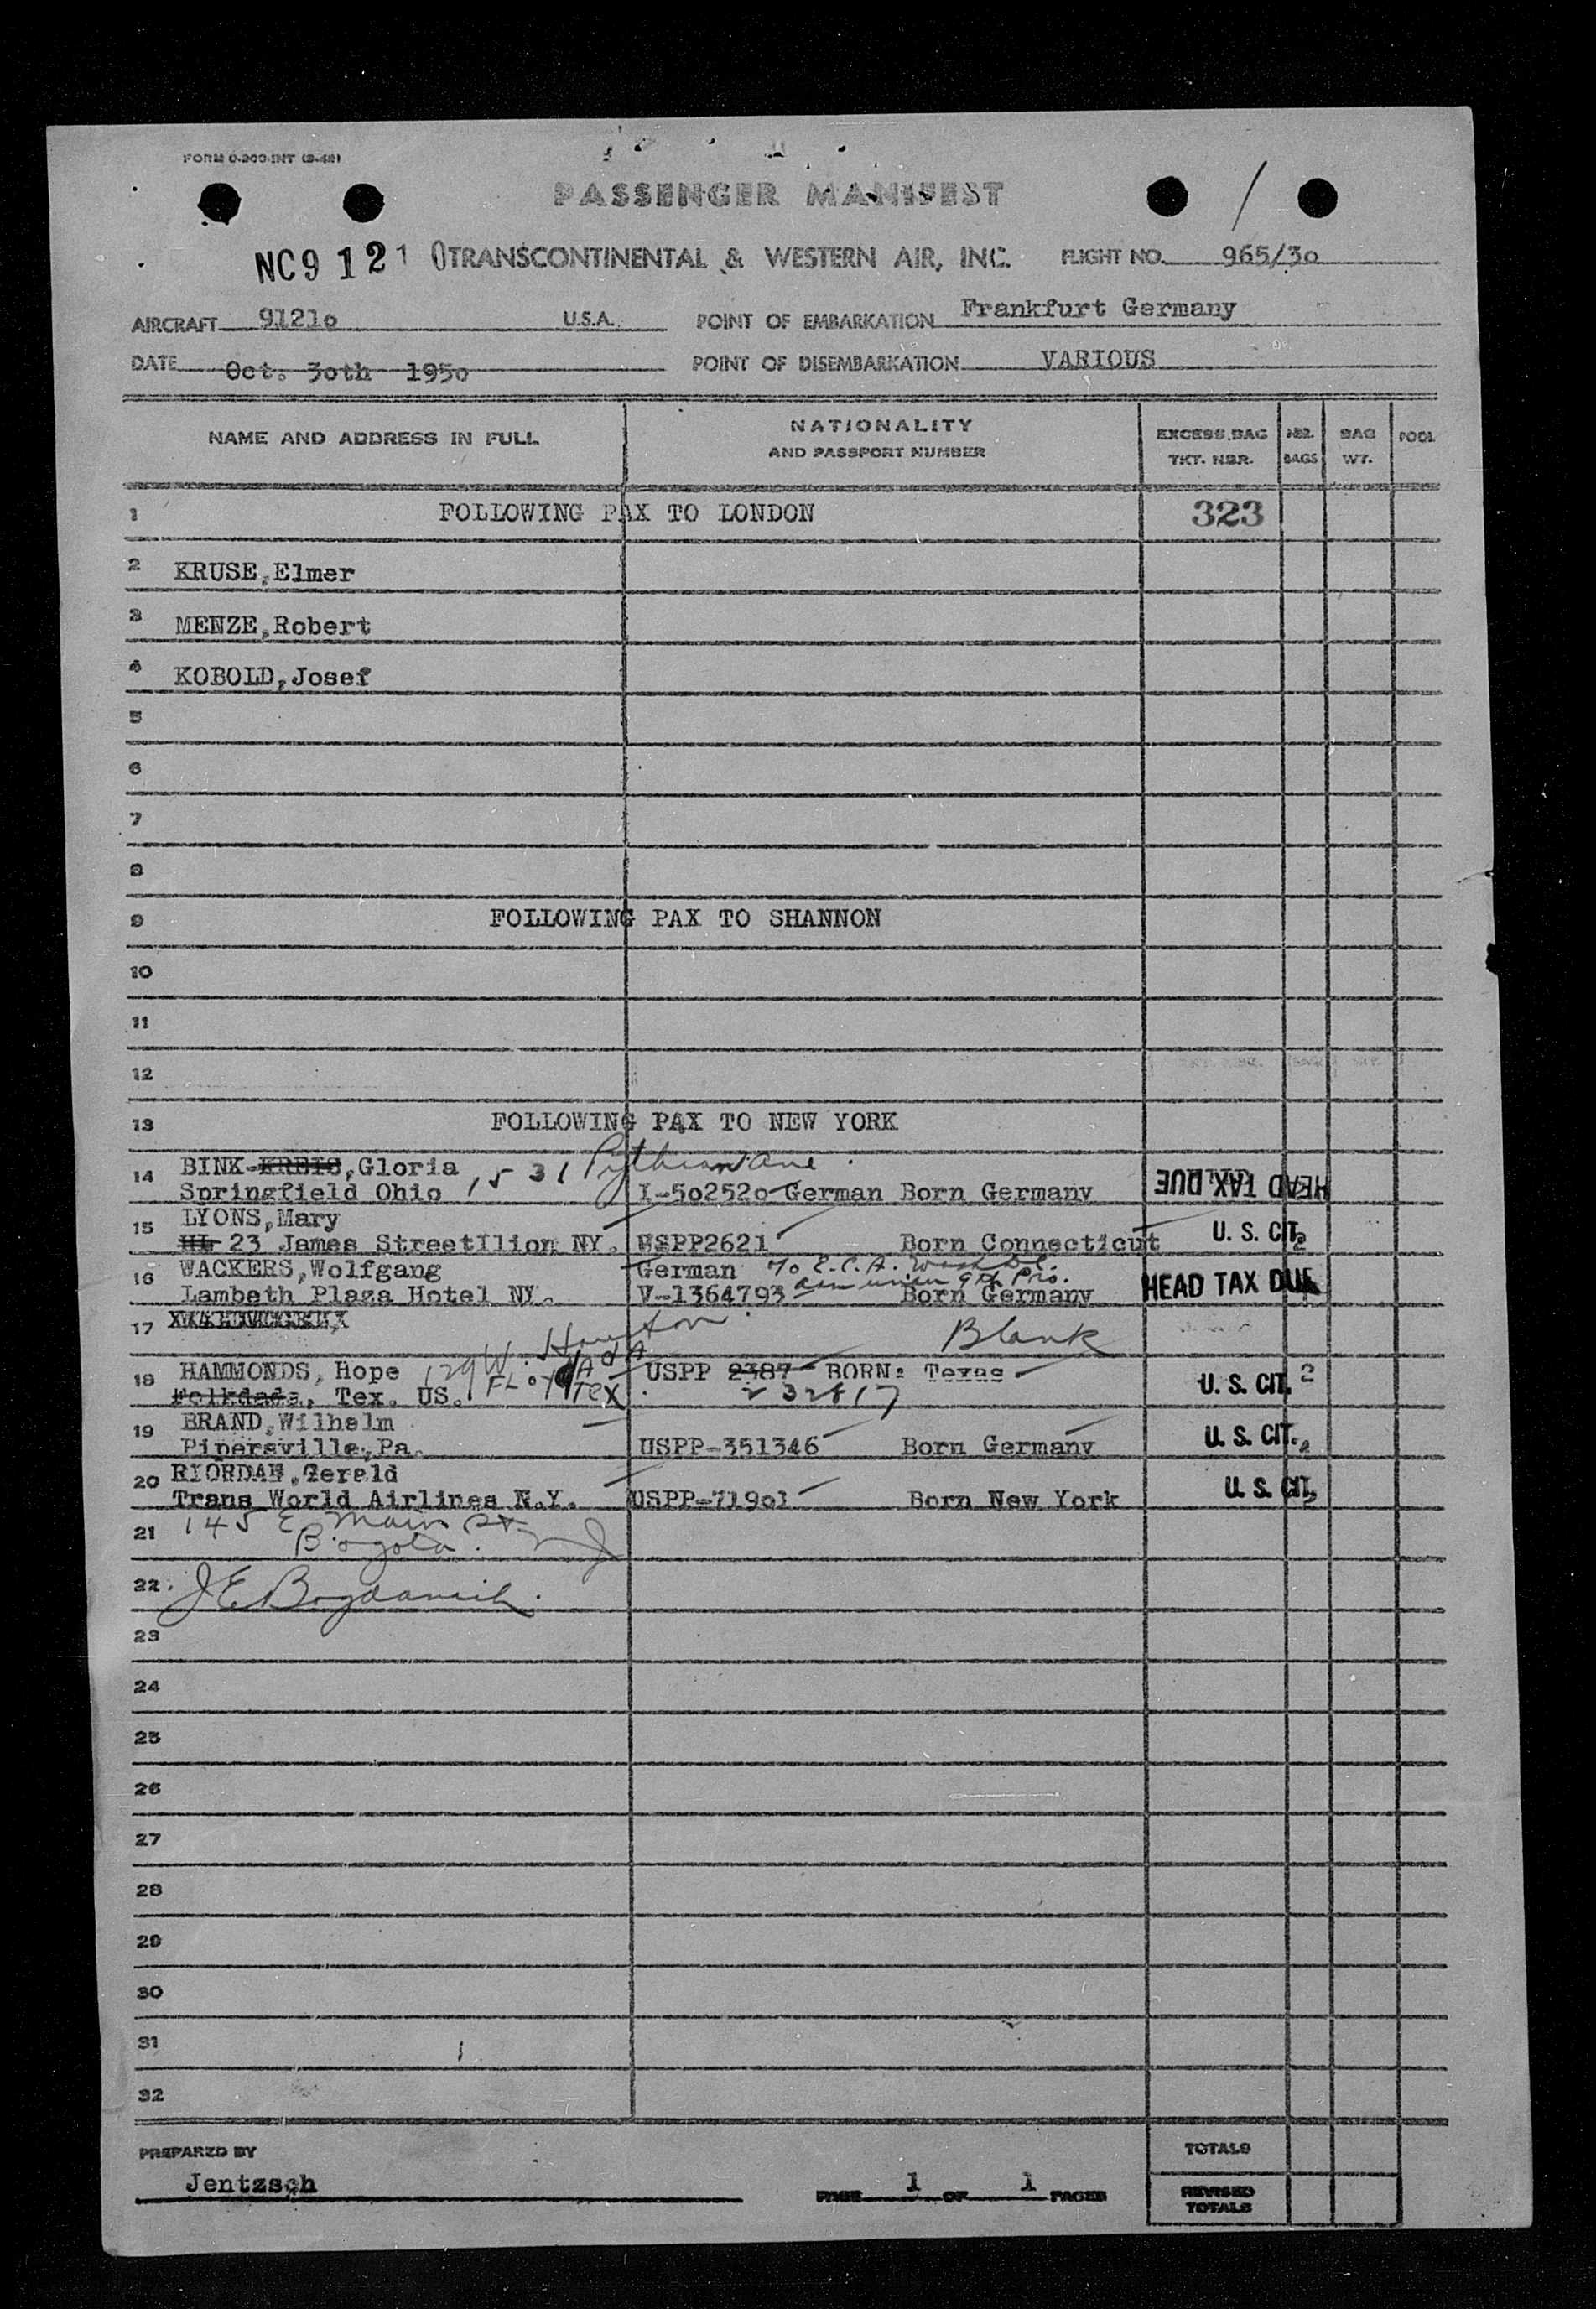 FORM 0-200-INT (2-48)
PASSENGER MANIFEST
/
NC91210 TRANSCONTINENTAL & WESTERN AIR, INC. FLIGHT NO. 965/3o
AIRCRAFT 9121o U.S.A. POINT OF EMBARKATION Frankfurt Germany
DATE Oct. 3oth 195o POINT OF DISEMBARKATION VARIOUS
NAME AND ADDRESS IN FULL
NATIONALITY
AND PASSPORT NUMBER
EXCESS BAG
TKT. NBR.
NBR.
BAGS
BAG
WT.
POOL
1 FOLLOWING PAX TO LONDON 323
2 KRUSE,Elmer
3 MENZE,Robert
4 KOBOLD,Josef
5
6
7
8
9 FOLLOWING PAX TO SHANNON
10
11
12
13 FOLLOWING PAX TO NEW YORK
14 BINK-KREIS,Gloria 1531 Pythian Ave
Springfield Ohio I-5o252o German Born Germany HEAD TAX DUE
15 LYONS,Mary
23 James StreetIlion NY. USPP2621 Born Connecticut U. S. CIT. 2
16 WACKERS,Wolfgang German To E.C.A.
Lambeth Plaza Hotel NY. V-1364793 Born Germany HEAD TAX DUE
17 Blank
18 HAMMONDS, Hope 129 W. Houston USPP 2387 BORN: Texas
Tex. US. FLOYDADA Tex 232817 U. S. CIT. 2
19 BRAND,Wilhelm
Pipersville,Pa. USPP-351346 Born Germany U. S. CIT. 2
20 RIORDAN,Gerald
Trans World Airlines N.Y. USPP-719o1 Born New York U. S. CIT. 2
21 145 E. Main St.
Bogota. NJ
22
23
24
25
26
27
28
29
30
31
32
PREPARED BY
Jentzsch
PAGE 1 OF 1 PAGES
TOTALS
REVISED
TOTALS